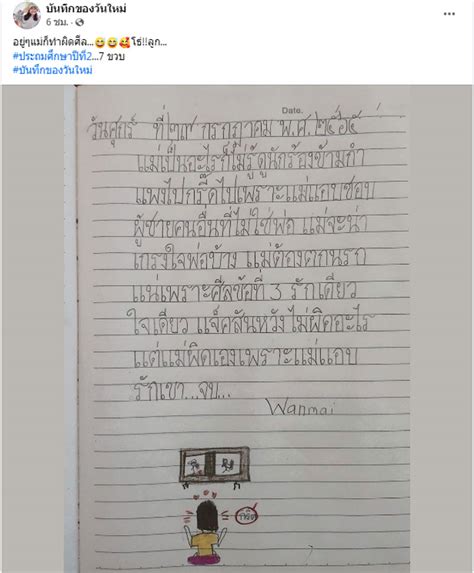 บันทึกของวันใหม่
6 ชม.
อยู่ๆแม่ก็ทำผิดศีล...😅😅🥰โธ่!!ลูก...
#ประถมศึกษาปีที่2...7 ขวบ
#บันทึกของวันใหม่
Date.
วันศุกร์ ที่ ๒๙ กรกฎาคม พ.ศ. ๒๕๖๕
แม่เป็นอะไรก็ไม่รู้ดูนักร้องข้ามกำ
แพงไปกรี๊ดไปเพราะแม่แอบชอบ
ผู้ชายคนอื่นที่ไม่ใช่พ่อ แม่จะน่า
เกรงใจพ่อบ้าง แม่ต้องตกนรก
แน่เพราะศีลข้อที่ 3 รักเดียว
ใจเดียว แจ็คสันหวังไม่ผิดอะไร
แต่แม่ผิดเองเพราะแม่แอบ
รักเขา...จบ...
Wanmai
กรี๊ด